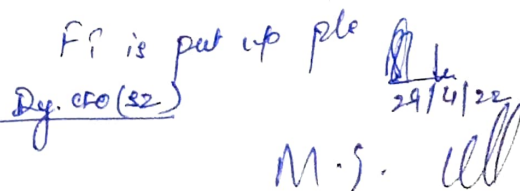 F? is put up ple
Dy. CFO (SZ)
29/4/22
M.S.